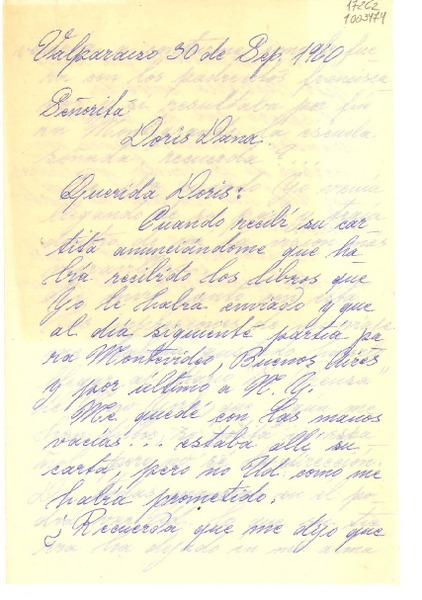 17262
1003474
Valparaiso 30 de Sep. 1960
Señorita
Doris Dana.
Querida Doris:
Cuando recibí su car-
tita anunciándome que ha
bía recibido los libros que
Yo le había enviado y que
al día siguiente partía pa
ra Montevideo, Buenos Aires
y por último a N. Y.
Me quedé con las manos
vacías... estaba allí su
carta, pero no Ud. como me
había prometido.
¿Recuerda que me dijo que